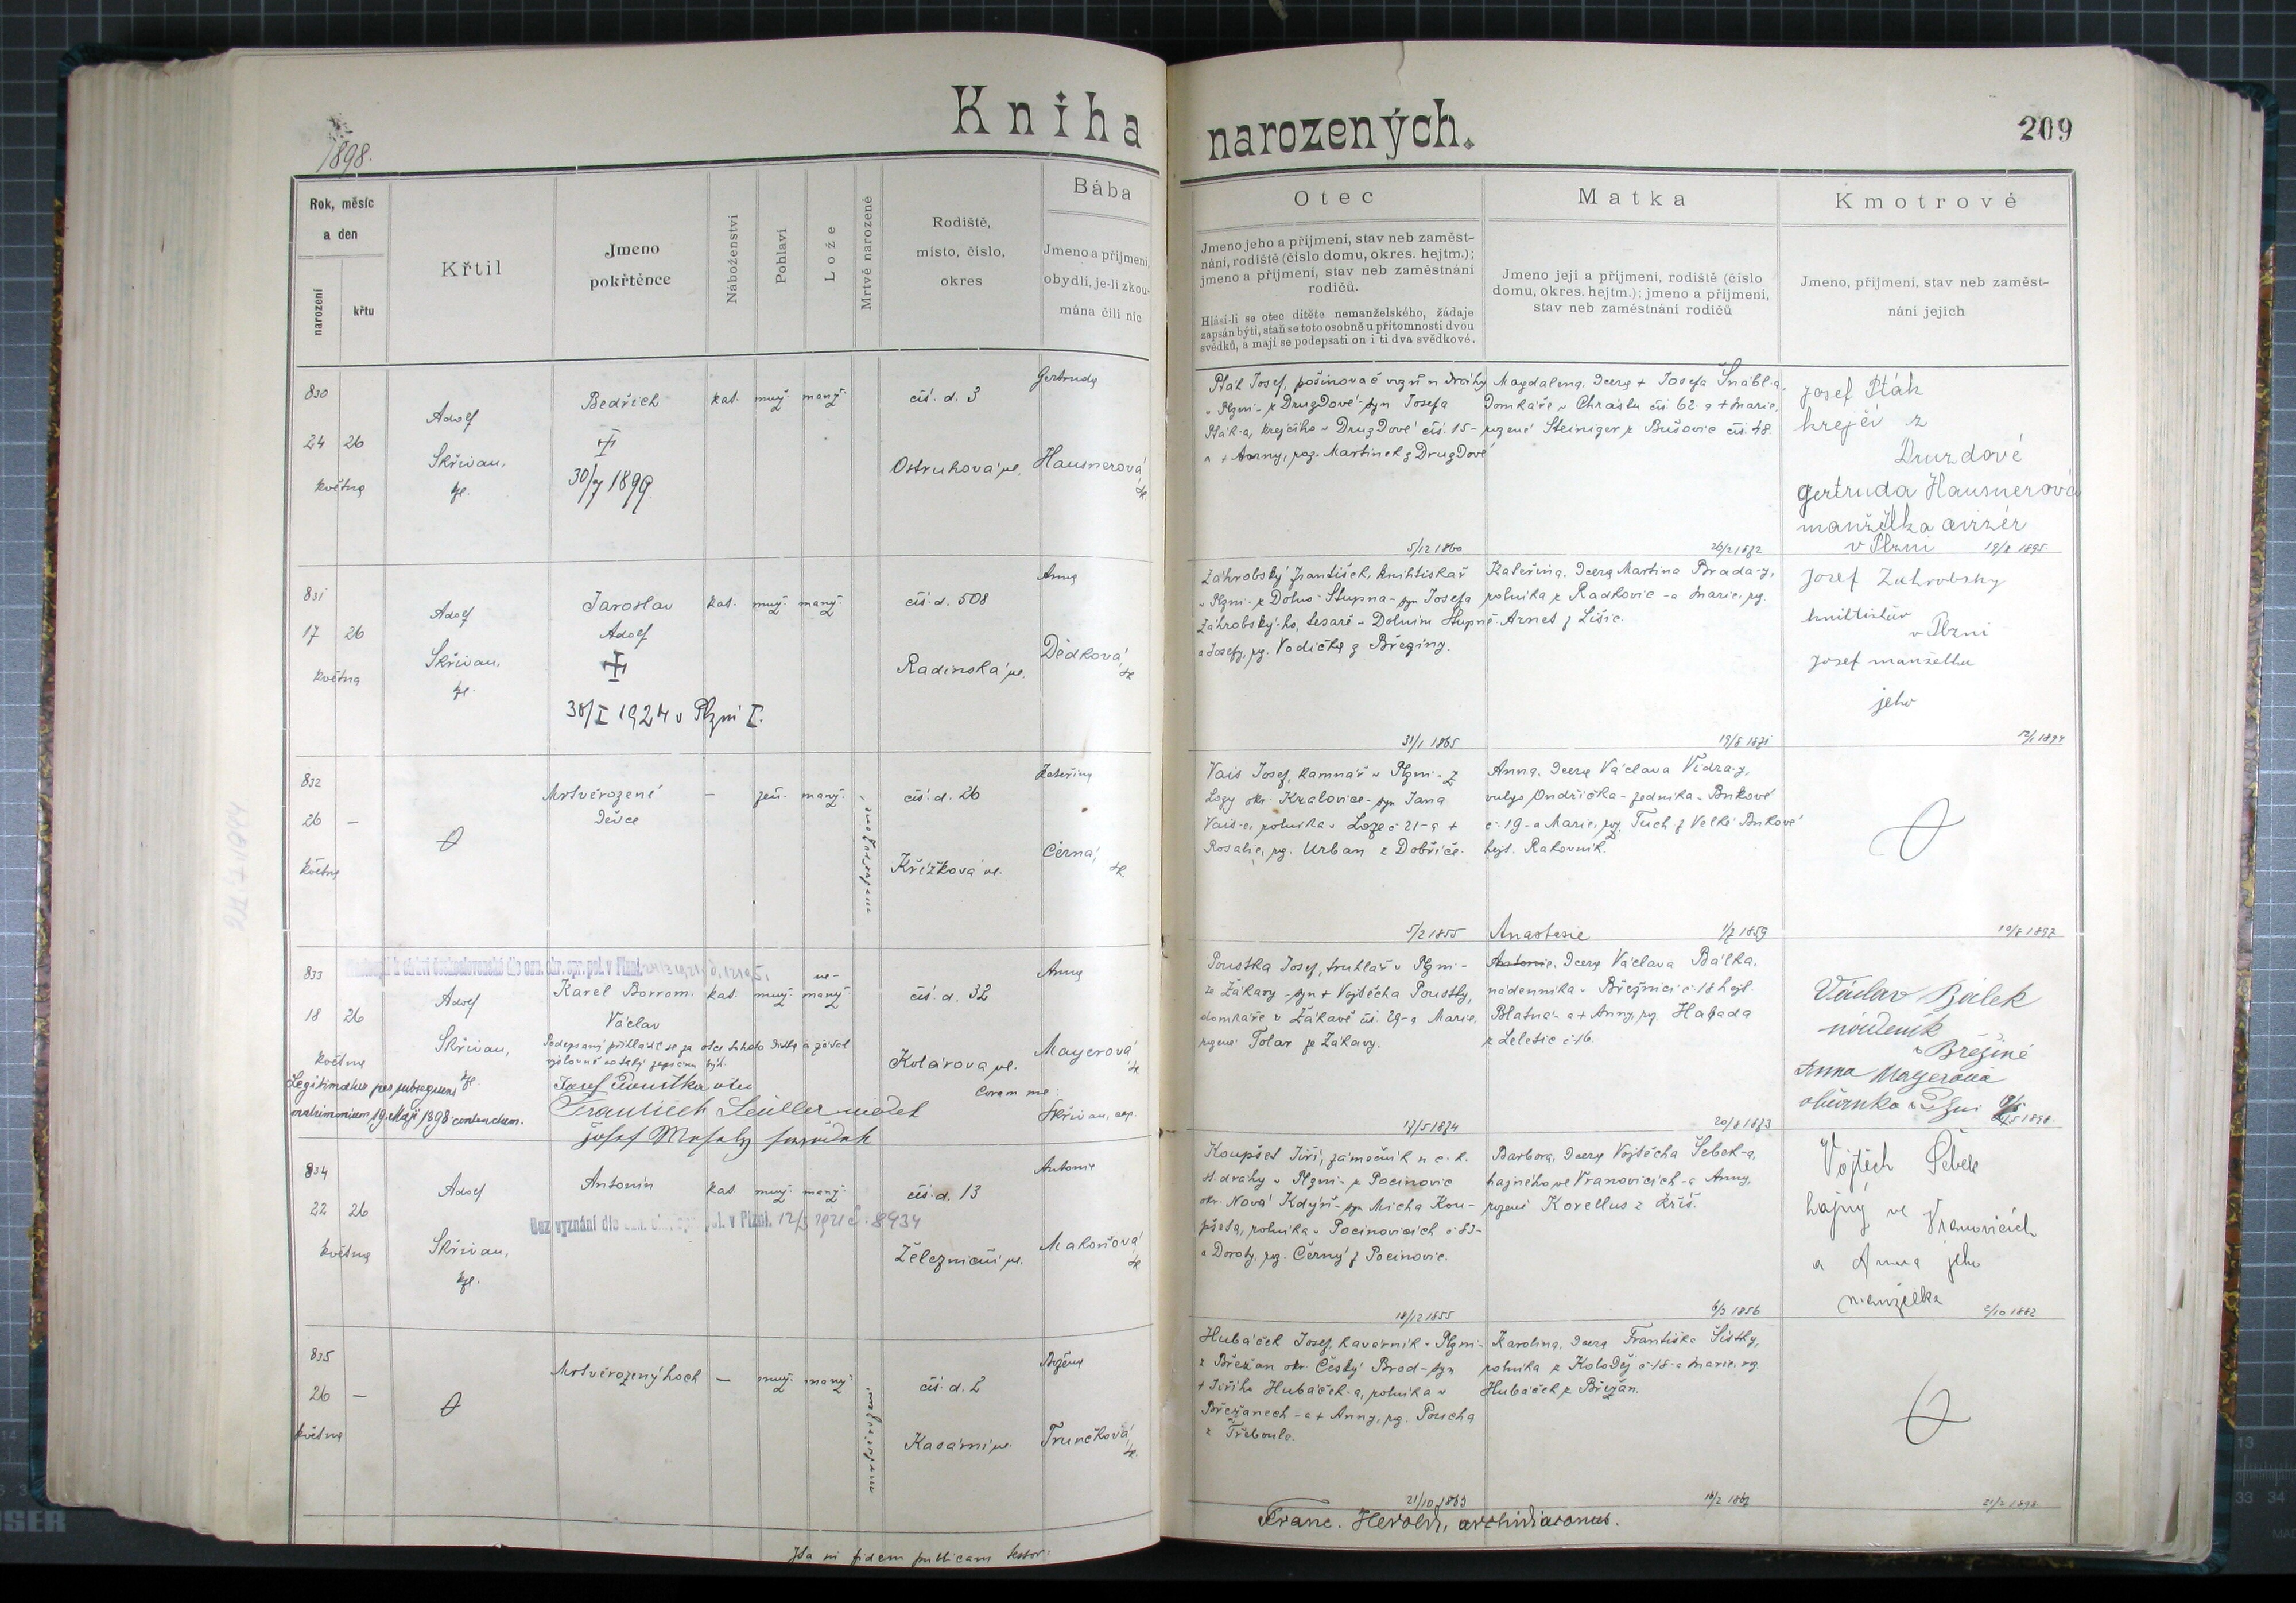 1898.
Kniha narozených.
209
Rok, měsíc
a den
narození
křtu
Křtil
Jmeno
pokřtěnce
Náboženství
Pohlaví
Lože
Mrtvě narozené
Rodiště,
místo, číslo,
okres
Bába
Jmeno a příjmení,
obydlí, je-li zkou-
mána čili nic
Otec
Jmeno jeho a příjmení, stav neb zaměst-
nání, rodiště (číslo domu, okres. hejtm.);
jmeno a příjmení, stav neb zaměstnání
rodičů.
Hlásí-li se otec dítěte nemanželského, žádaje
zapsán býti, staň se toto osobně u přítomnosti dvou
svědků, a mají se podepsati on i ti dva svědkové.
Matka
Jmeno její a příjmení, rodiště (číslo
domu, okres. hejtm.); jmeno a příjmení,
stav neb zaměstnání rodičů
Kmotrové
Jmeno, příjmení, stav neb zaměst-
nání jejich
830
24 26
května
Adolf
Skřivan,
kpl.
Bedřich
30/7 1899
kat.
muž.
manž.
čís. d. 3
Ostruhová ul.
Gertruda
Hausnerová
zk.
Pták Josef, pošinovač vozů u dráhy
v Plzni - z Druzdové - syn Josefa
Pták-a, krejčího v Druzdové čís. 15 -
a + Anny, roz. Martínek z Druzdové
5/12 1860
Magdalena, dcera + Josefa Šnábl-a,
domkáře v Chrástu čís. 62 a + Marie,
rozené Steiniger z Bušovic čís. 48.
26/2 1872
Josef Pták
krejčí z
Druzdové
Gertruda Hausnerová
manželka
v Plzni 19/8 1895
831
17 26
května
Adolf
Skřivan,
kpl.
Jaroslav
Adolf
30/I 1924 v Plzni I.
kat.
muž.
manž.
čís. d. 508
Radinská ul.
Anna
Dědková
zk
Záhrobský František, knihtiskař
v Plzni - z Dolno-Stupna - syn Josefa
Záhrobský-ho, tesaře v Dolním Stupně
a Josefy, roz. Vodička z Březiny.
31/1 1865
Kateřina, dcera Martina Brada-y,
rolníka z Radkovic - a Marie, roz.
Arnet z Lišic.
19/8 1871
Josef Zahrobsky
v Plzni
Josef manželka
jeho
832
26 —
května
Mrtvěrozené
děvče
—
žen.
manž.
mrtvěrozené
čís. d. 26
Křížkova ul.
Kateřina
Černá,
zk.
Vais Josef, kamnář v Plzni - z
Lozy okr. Kralovice - syn Jana
Vais-e, rolníka v Loze č 21 - a +
Rosalie, roz. Urban z Dobříče.
5/2 1855
Anna, dcera Václava Vidra-y,
vulgo Ondřička - zedníka v Bukové
č. 19 - a Marie, roz. Tuch z Velké Bukové
hejt. Rakovník.
1/7 1859
19/8 1897
833
18 26
května
Adolf
Skřivan,
kpl.
Legitimatus per subsequens
matrimonium 19. Maji 1898 contractum.
Karel Borrom.
Václav
Podepsaný přihlásil se za otce tohoto dítěte a žádal
Josef Poustka otec
František svědek
kat.
muž.
ne-
manž.
čís. d. 32
Kolárova ul.
Coram me:
Skřivan,
Anna
Mayerová
zk.
Poustka Josef, truhlář v Plzni -
ze Žákavy - syn + Vojtěcha Poustky,
domkáře v Žákavě čís. 29 - a Marie,
rozené Tolar ze Žákavy.
17/5 1874
Anastasie
Antonie, dcera Václava Bálka,
nádenníka v Březnici č. 18 hejt.
Blatná - a + Anny, roz. Hajada
z Leletic č 16.
20/8 1873
Václav Bálek
nádeník
v Březině
Anna Mayerová
v Plzni
1898.
834
22 26
května
Adolf
Skřivan,
kpl.
Antonín
kat.
muž.
manž.
Bez vyznání dle v Plzni. 12/3 1921 č. 8934
čís. d. 13
Železniční ul.
Antonie
Makoňová
zk
Koupšet Jiří, zámečník u c. k.
st. dráhy v Plzni - z Pocinovic
okr. Nová Kdyně - syn Micha Kou-
pšeta, rolníka v Pocinovicích č 83 -
a Doroty, roz. Černý z Pocinovic.
18/12 1855
Barbora, dcera Vojtěcha Šebek-a,
hajného ve Vranovicích - a Anny,
rozené Korellus z Kříš.
6/3 1856
Vojtěch Šebek
hajný ve
Vranovicích
a Anna jeho
manželka 2/10 1882
835
26 —
května
Mrtvěrozený hoch
—
muž.
manž.
mrtvěrozen.
čís. d. 2
Kasární ul.
Božena
Trunečková
zk.
Hubáček Josef, kavárník v Plzni -
z Břežan okr. Český Brod - syn
+ Jiřího Hubáček-a, rolníka v
Břežanech - a + Anny, roz. Poucha
z Třeboule.
21/10 1863
Karolina, dcera Františka Šístky,
rolníka z Koloděj č 18 - a Marie, roz.
Hubáček z Břežan.
16/2 1867
21/2 1898
Ita in fidem publicam testor:
Franc. Herold, archidiaconus.